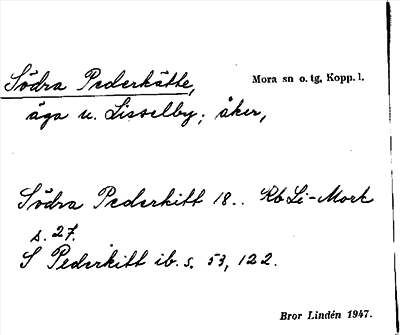 Södra Pederkätte, Mora sn o. tg, Kopp. l.
äga u. Lisselby; åker,
Södra Pederkitt 18.. Rb Li-Mork
s. 27.
S Pederkitt ib. s. 53, 122.
Bror Lindén 1947.